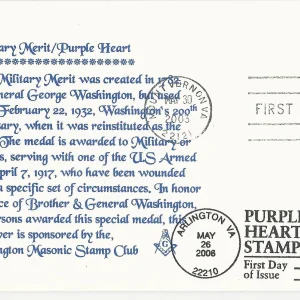 ary Merit/Purple Heart
Military Merit was created in 178
eneral George Washington, but used
February 22, 1932, Washington's 200th
ary, when it was reinstituted as the
The medal is awarded to Military or
s, serving with one of the US Armed
pril 7, 1917, who have been wounded
a specific set of circumstances. In honor
ce of Brother & General Washington,
ersons awarded this special medal, this
ver is sponsored by the
ngton Masonic Stamp Club
MOUNT VERNON VA
MAY 30
2003
22121
FIRST
ARLINGTON VA
MAY
26
2006
22210
PURPLE
HEART
STAMP
First Day
of Issue